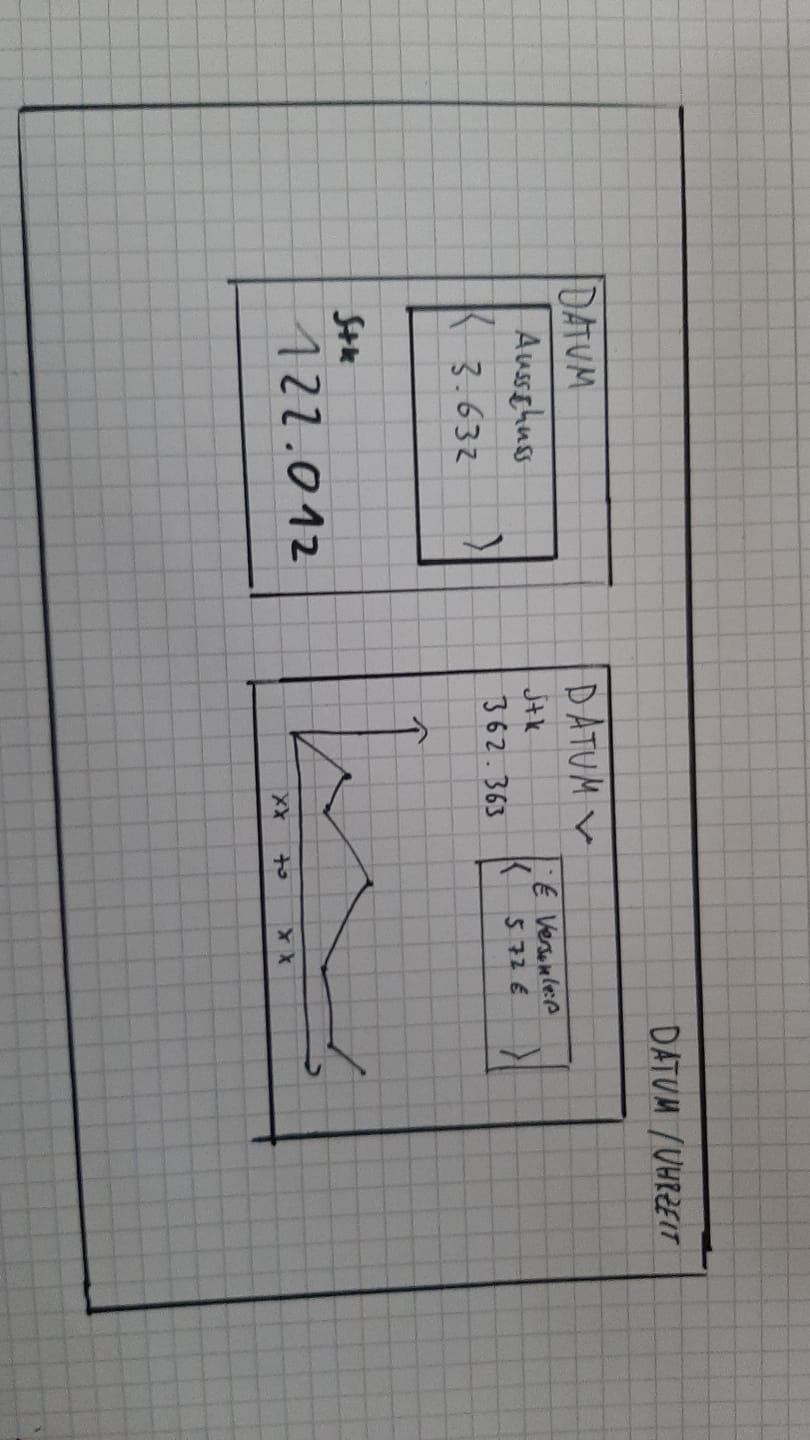 DATUM / UHRZEIT
DATUM
Ausschuss
< 3.632 >
Stk
122.012
DATUM ∨
Stk
362.363
€ Verschleiß
< 572 € >
xx to xx